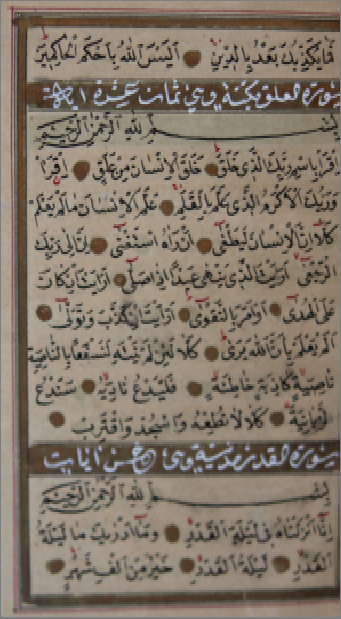 فَمَا يُكَذِّبُكَ بَعْدُ بِالدِّينِ أَلَيْسَ اللَّهُ بِأَحْكَمِ الْحَاكِمِينَ
سورة العلق مكية وهي ثمان عشرة اية
بِسْمِ اللَّهِ الرَّحْمَٰنِ الرَّحِيمِ
اِقْرَأْ بِاسْمِ رَبِّكَ الَّذِي خَلَقَ خَلَقَ الْإِنْسَانَ مِنْ عَلَقٍ اِقْرَأْ
وَرَبُّكَ الْأَكْرَمُ الَّذِي عَلَّمَ بِالْقَلَمِ عَلَّمَ الْإِنْسَانَ مَا لَمْ يَعْلَمْ
كَلَّا إِنَّ الْإِنْسَانَ لَيَطْغَى أَنْ رَآهُ اسْتَغْنَى إِنَّ إِلَى رَبِّكَ
الرُّجْعَى أَرَأَيْتَ الَّذِي يَنْهَى عَبْدًا إِذَا صَلَّى أَرَأَيْتَ إِنْ كَانَ
عَلَى الْهُدَى أَوْ أَمَرَ بِالتَّقْوَى أَرَأَيْتَ إِنْ كَذَّبَ وَتَوَلَّى
أَلَمْ يَعْلَمْ بِأَنَّ اللَّهَ يَرَى كَلَّا لَئِنْ لَمْ يَنْتَهِ لَنَسْفَعًا بِالنَّاصِيَةِ
نَاصِيَةٍ كَاذِبَةٍ خَاطِئَةٍ فَلْيَدْعُ نَادِيَهُ سَنَدْعُ
الزَّبَانِيَةَ كَلَّا لَا تُطِعْهُ وَاسْجُدْ وَاقْتَرِبْ
سورة القدر مدنية وهي خمس ايات
بِسْمِ اللَّهِ الرَّحْمَٰنِ الرَّحِيمِ
إِنَّا أَنْزَلْنَاهُ فِي لَيْلَةِ الْقَدْرِ وَمَا أَدْرَاكَ مَا لَيْلَةُ
الْقَدْرِ لَيْلَةُ الْقَدْرِ خَيْرٌ مِنْ أَلْفِ شَهْرٍ